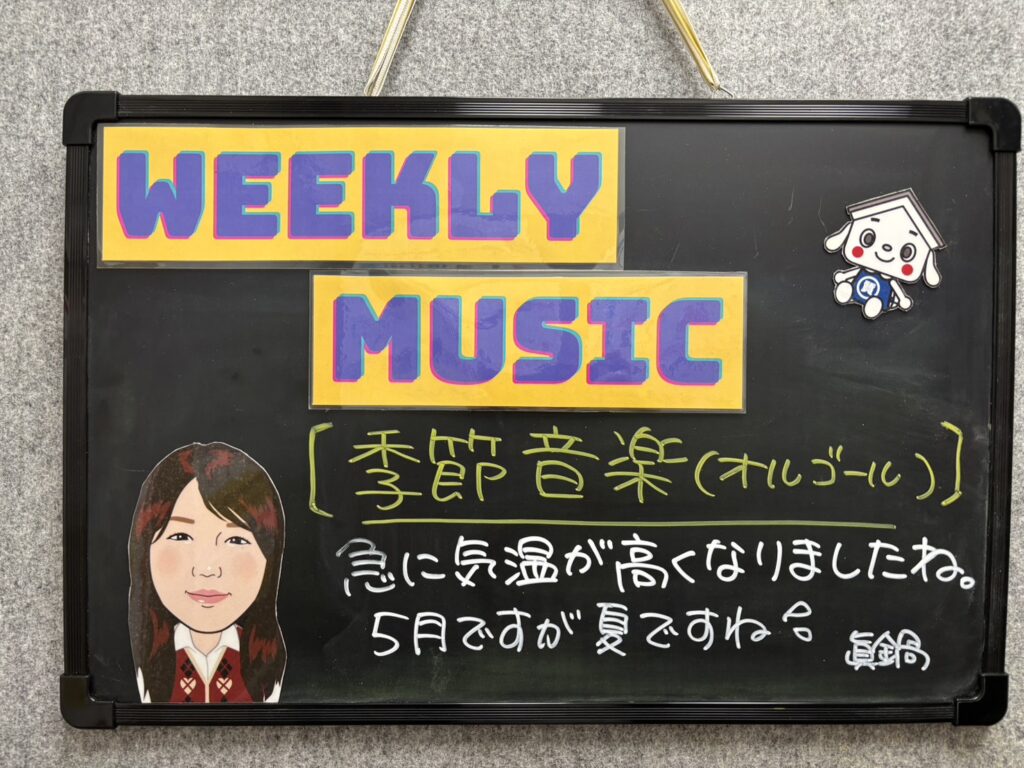 WEEKLY
MUSIC
[季節音楽(オルゴール)]
急に気温が高くなりましたね。
5月ですが夏ですね
眞鍋